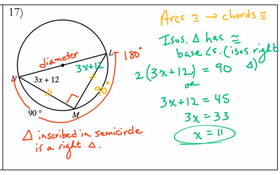 17)
Arcs ≅ → chords ≅
Isos. Δ has ≅
base ∠s. (isos right Δ)
diameter
L
3x+12
180°
2(3x+12) = 90
or
3x + 12
N
90°
3x+12 = 45
3x = 33
90°
M
x = 11
Δ inscribed in semicircle
is a right Δ.